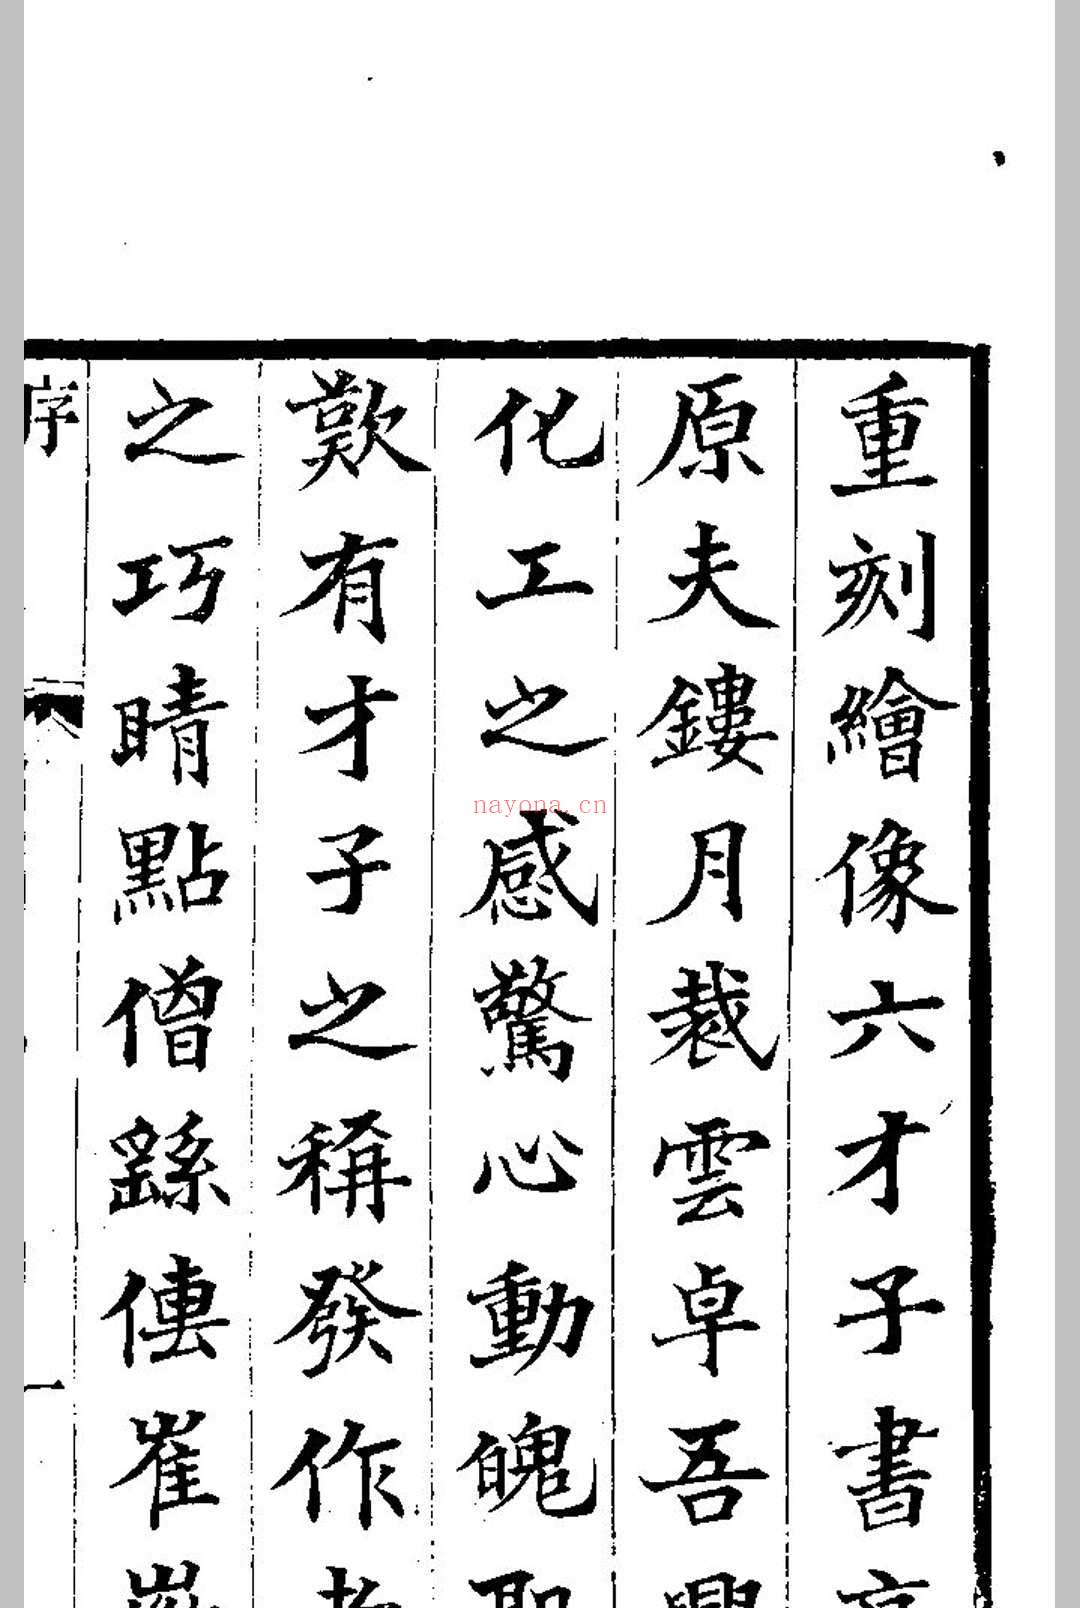 重刻繪像六才子書
原夫鏤月裁雲卓吾興
化工之感驚心動魄聖
歎有才子之稱發作
之巧晴點僧繇傳崔
序
一
nayona.cn